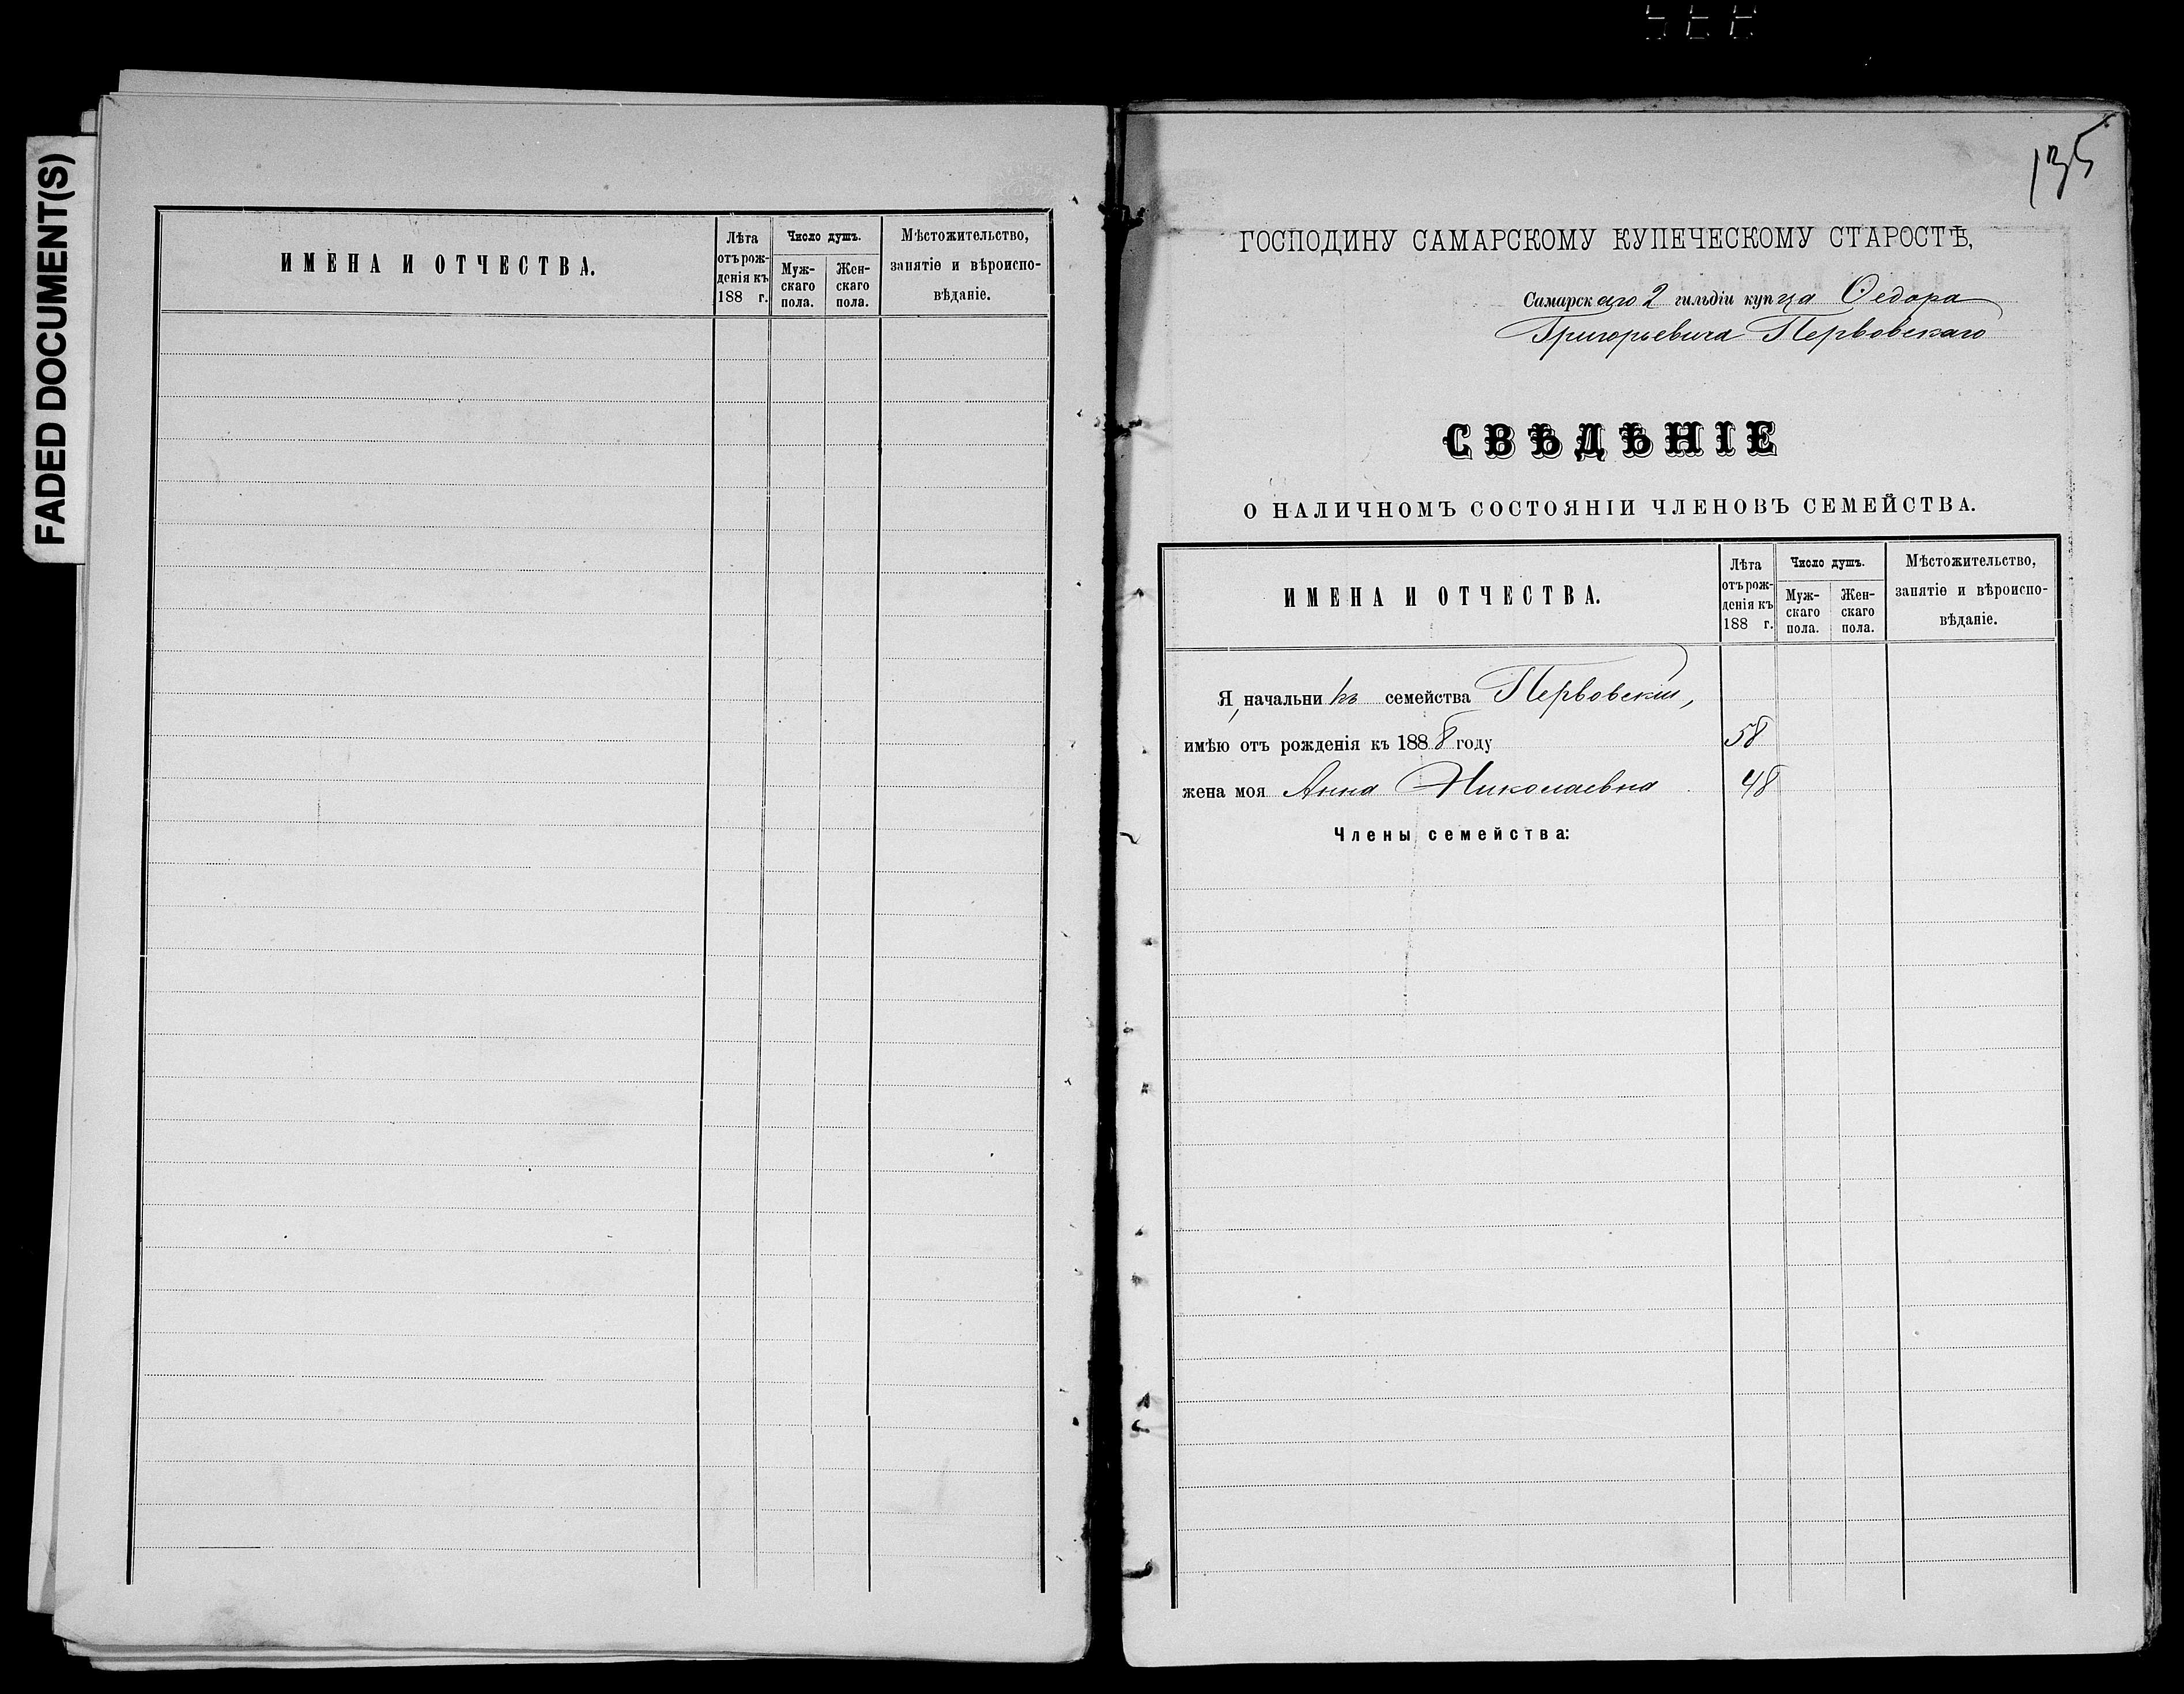 FADED DOCUMENT(S)
ИМЕНА И ОТЧЕСТВА.
Лѣта
отъ рож-
денія къ
188 г.
Число душъ.
Муж-
скаго
пола.
Жен-
скаго
пола.
Мѣстожительство,
занятіе и вѣроиспо-
вѣданіе.
135
ГОСПОДИНУ САМАРСКОМУ КУПЕЧЕСКОМУ СТАРОСТѢ,
Самарскаго 2 гильдіи купца Ѳедора
Григорьевича Первовскаго
СВѢДѢНІЕ
О НАЛИЧНОМЪ СОСТОЯНІИ ЧЛЕНОВЪ СЕМЕЙСТВА.
ИМЕНА И ОТЧЕСТВА.
Лѣта
отъ рож-
денія къ
188 г.
Число душъ.
Муж-
скаго
пола.
Жен-
скаго
пола.
Мѣстожительство,
занятіе и вѣроиспо-
вѣданіе.
Я, начальникъ семейства Первовскій,
имѣю отъ рожденія къ 1888 году 58
жена моя Анна Николаевна 48
Члены семейства: